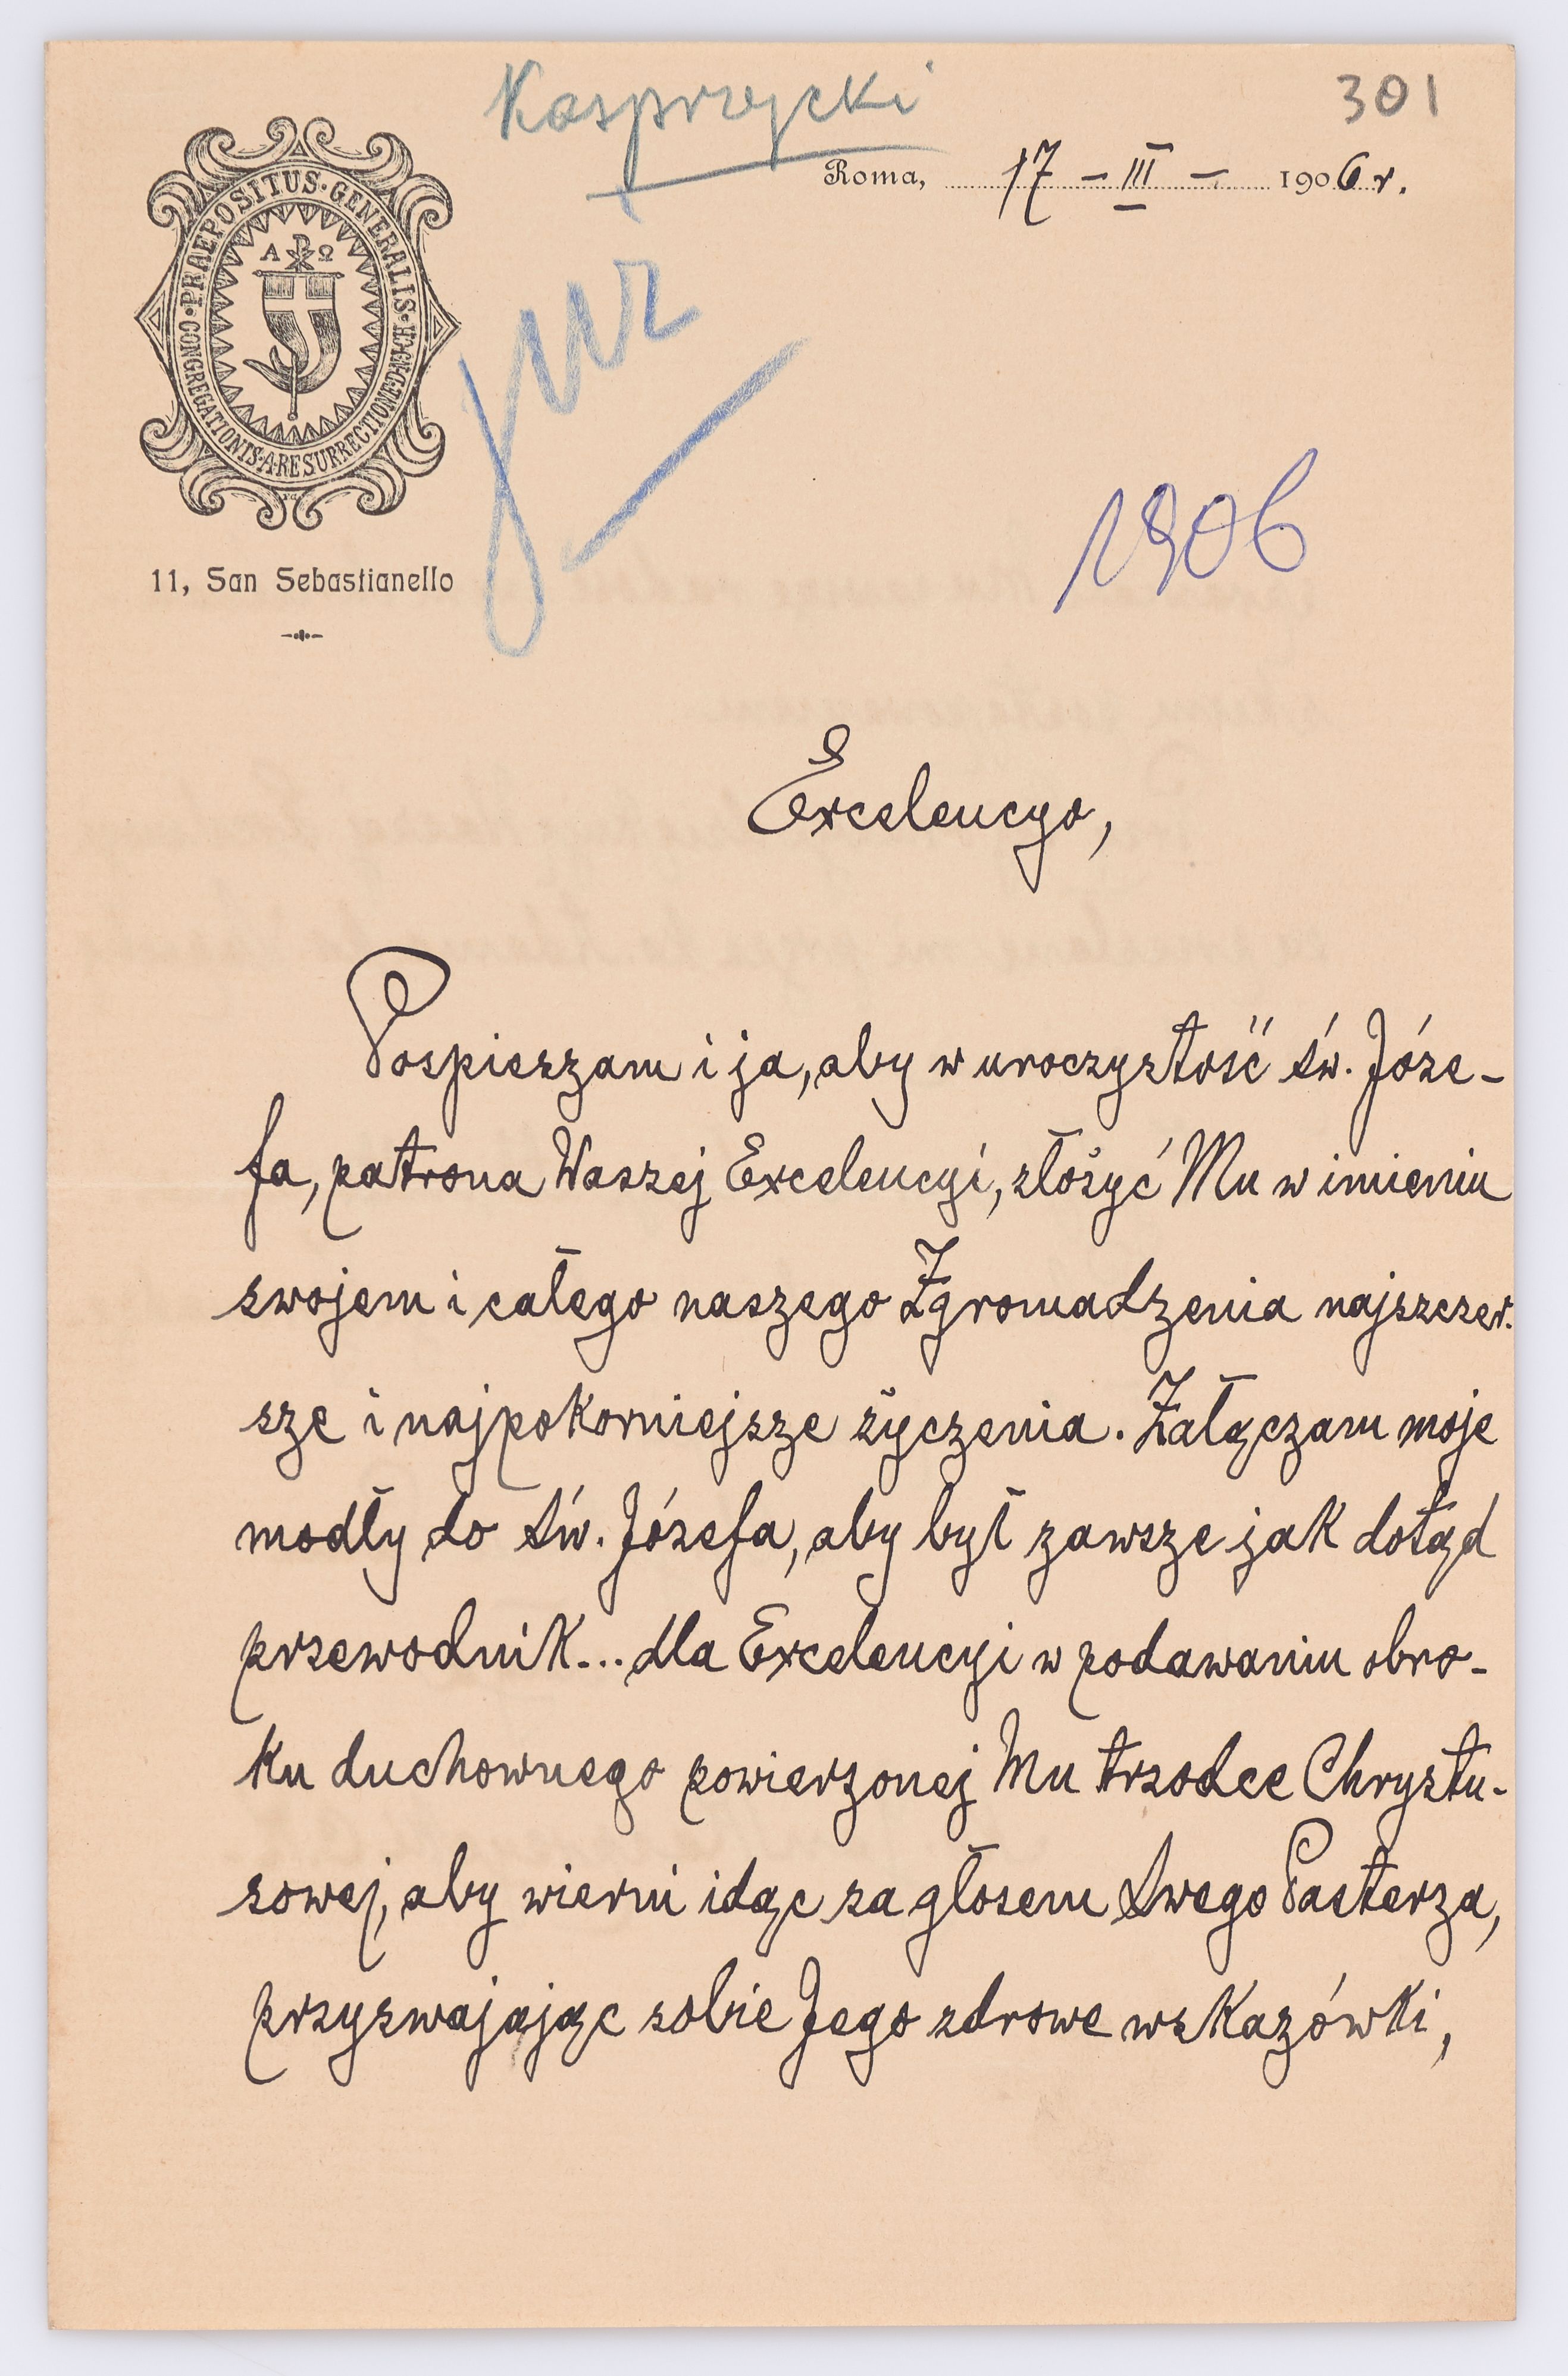 Kasprzycki
301
Roma, 17 - III - 1906 r.
PRAEPOSITUS · GENERALIS · CONGREGATIONIS · A · RESURRECTIONE · D · N · J · CH ·
Α Ω
11, San Sebastianello
1906
Excelencyo,
Pospieszam i ja, aby w uroczystość św. Józe-
fa, patrona Waszej Excelencyi, złożyć Mu w imieniu
swojem i całego naszego Zgromadzenia najszczer-
sze i najpokorniejsze życzenia. Załączam moje
modły do św. Józefa, aby był zawsze jak dotąd
przewodnik... dla Excelencyi w podawaniu obro-
ku duchownego powierzonej Mu trzodce Chrystu-
sowej, aby wierni idąc za głosem Swego Pasterza,
przyswajając sobie Jego zdrowe wskazówki,